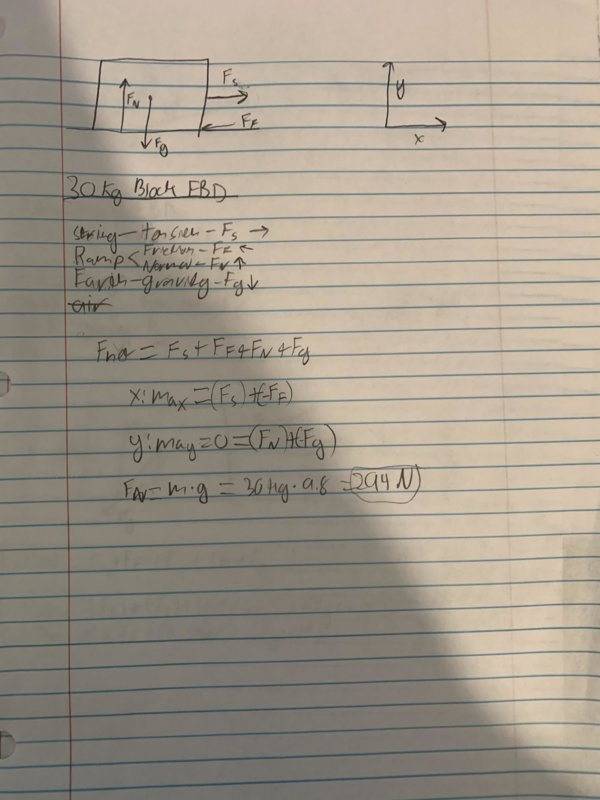 F_s
F_N
F_F
F_g
y
x
30 kg Block FBD
string - tension - F_s →
Ramp < Friction - F_F ←
Normal - F_N ↑
Earth - gravity - F_g ↓
air
F_net = F_s + F_F + F_N + F_g
x: ma_x = (F_s) + (-F_F)
y: ma_y = 0 = (F_N) + (-F_g)
F_N = m·g = 30 kg · 9.8 = 294 N